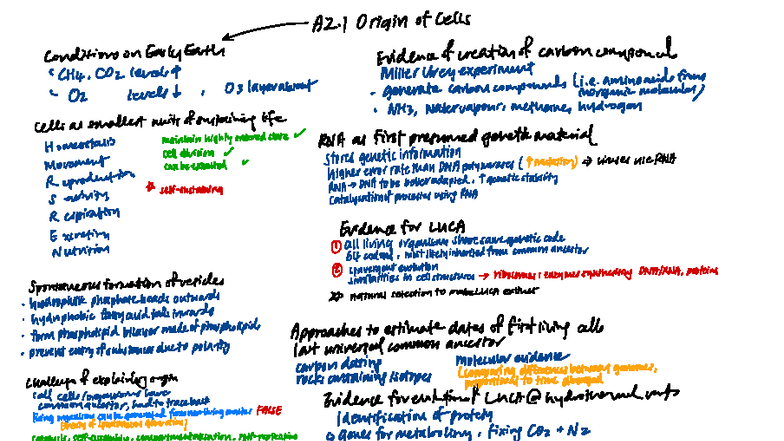 A2.1 Origin of Cells
Conditions on Early Earth
CH4, CO2 levels ↑
O2 levels ↓, O3 layer absent
Cells as smallest units of sustaining life
Homeostasis
Movement
Reproduction
Sensitivity
Respiration
Excretion
Nutrition
maintain highly ordered state ✓
Cell division ✓
can be ✓
* self-sustaining
Spontaneous formation of vesicles
• hydrophilic phosphate heads outwards
• hydrophobic fatty acid tails inwards
• form phospholipid bilayer made of phospholipid
• prevent entry of substances due to polarity
Challenge of explaining origin
cells
common ancestor, hard to trace back
living organisms can be generated from non-living matter FALSE
(theory of spontaneous generation)
catalysis, self-assembly, compartmentalisation, self-replication
Evidence of creation of carbon compound
Miller Urey experiment
• generate carbon compounds (i.e. amino acids from
inorganic molecules)
• NH3, water vapour, methane, hydrogen
RNA as first presumed genetic material
Stores genetic information
higher error rate than DNA polymerases (↑ mutation) → viruses use RNA
RNA → DNA to be better adapted, ↑ genetic stability
processes using RNA
Evidence for LUCA
① all living organisms share same genetic code
64 codons, most likely inherited from common ancestor
② evolution
similarities in cell structures → ribosomes, enzymes synthesising DNA/RNA, proteins
natural selection to make LUCA extinct
Approaches to estimate dates of first living cells
last universal common ancestor
carbon dating
rocks containing isotopes
Molecular evidence
(comparing differences between genomes,
proportional to time diverged)
Evidence for evolution of LUCA @ hydrothermal vents
Identification of protein
→ Genes for metabolism, fixing CO2 + N2